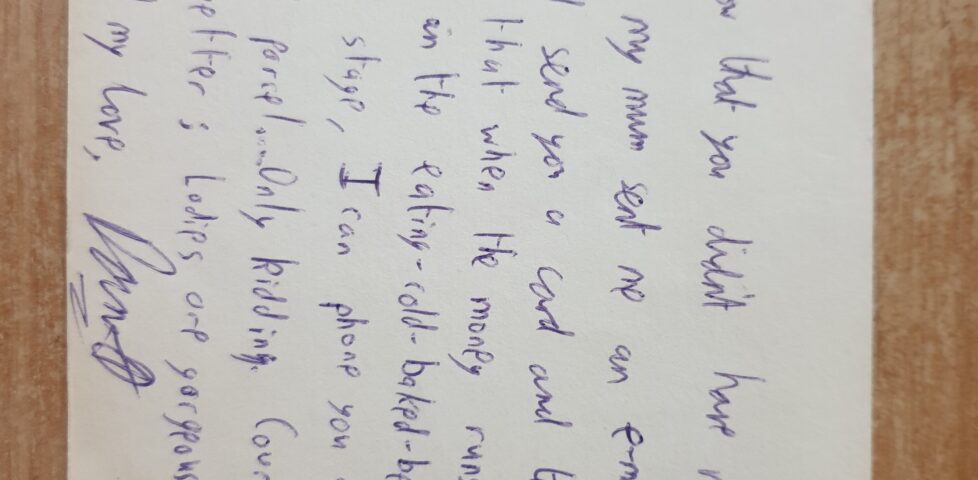 that you didn't have
my mum sent me an e-m
send you a card and
that when the money run
in the eating-cold-baked-b
stage, I can phone you
parcel.....Only kidding.
Ladies are gorgeous
my love,